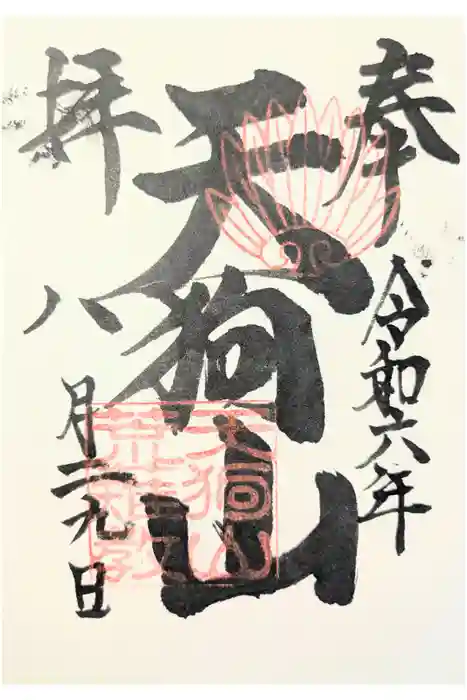 奉拝
令和六年
天狗山
八月二九日
天狗山
荒雄教